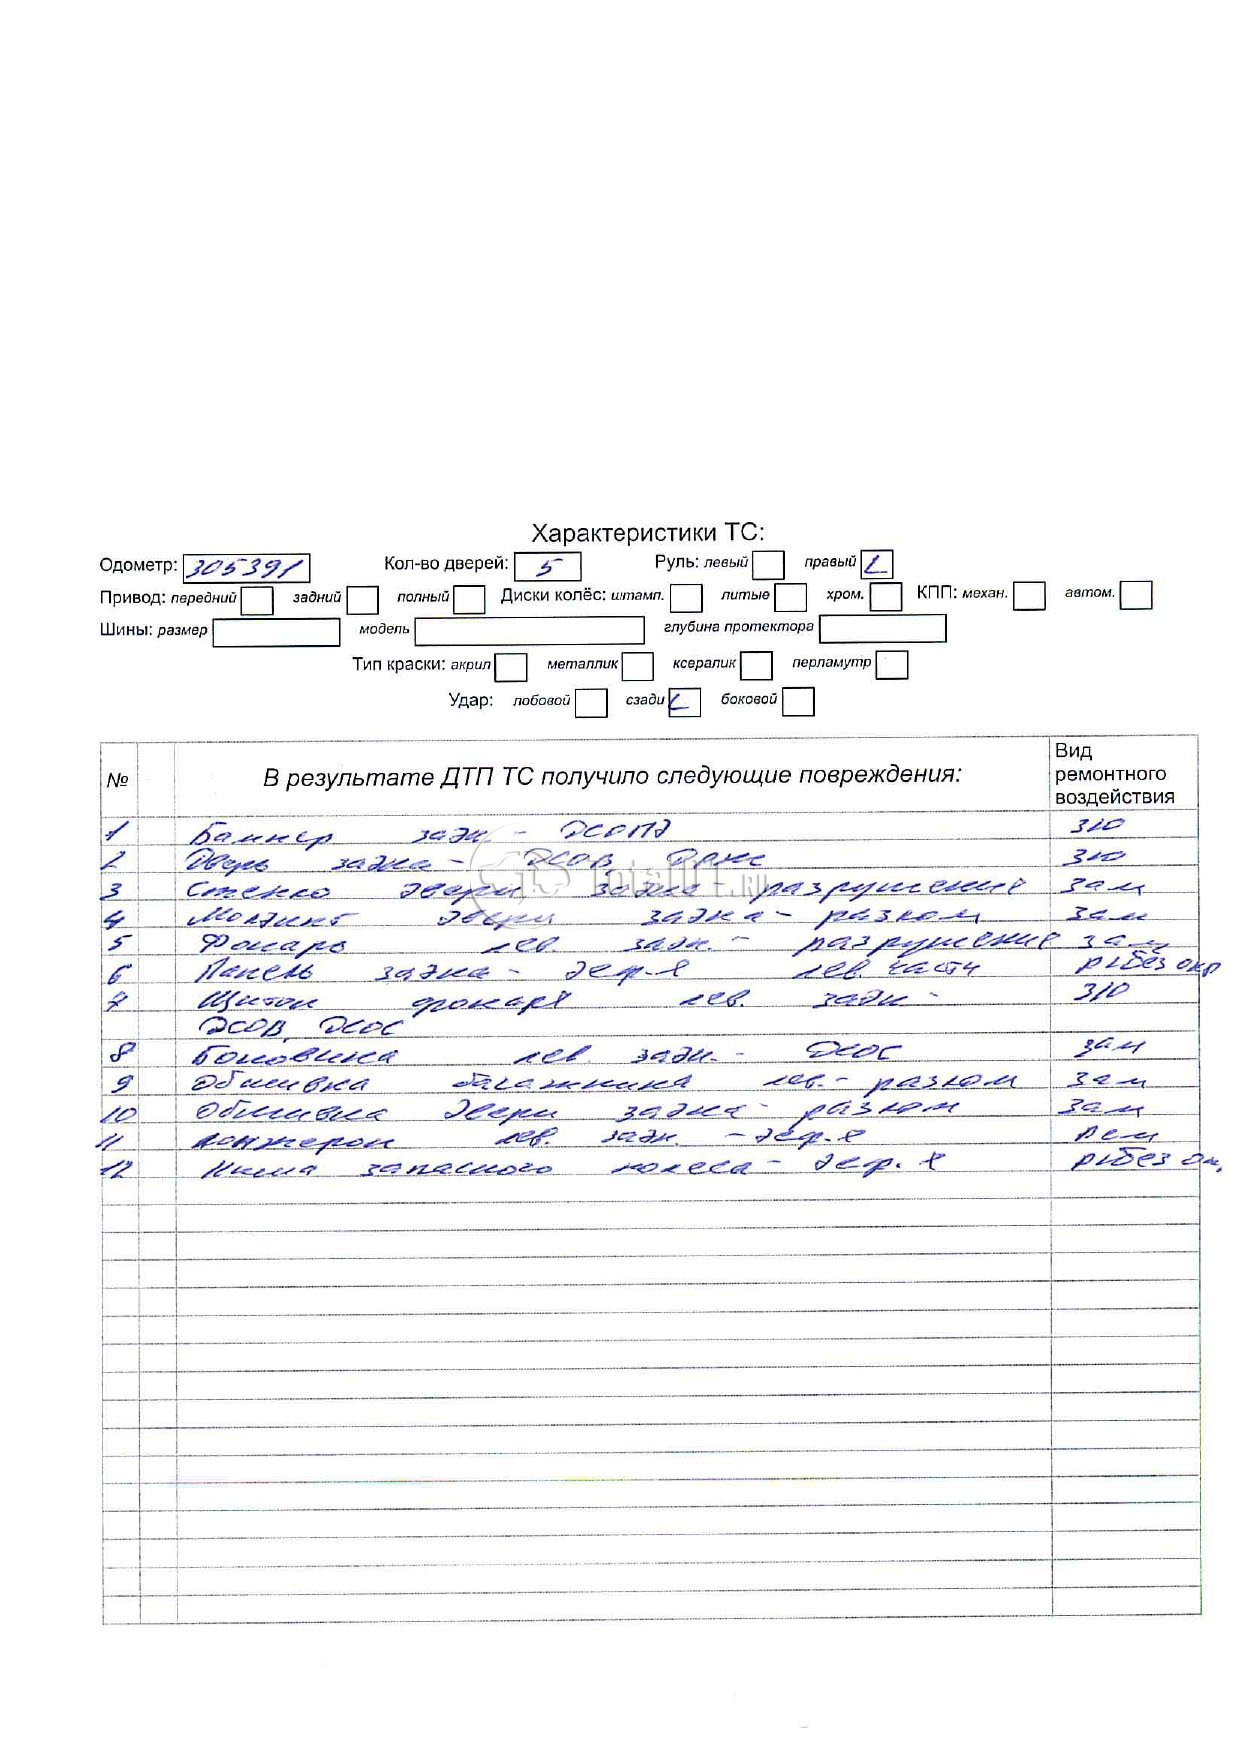 Характеристики ТС:
Одометр: 305391 Кол-во дверей: 5 Руль: левый правый
Привод: передний задний полный Диски колёс: штамп. литые хром. КПП: механ. автом.
Шины: размер модель глубина протектора
Тип краски: акрил металлик ксералик перламутр
Удар: лобовой сзади боковой
№ В результате ДТП ТС получило следующие повреждения: Вид ремонтного воздействия
1 Бампер задн - З/О
2 Дверь задка - З/О
3 Стекло двери задка разрушение зам
4 Молдинг двери задка - разлом зам
5 Фонарь лев. задн. - разрушение зам
6 Панель задка - деф-я лев. части
7 Щиток фонаря лев. задн - З/О
8 Боковина лев. задн. - зам
9 Обшивка багажника лев. - разлом зам
10 Обшивка двери задка - разлом зам
11 Лонжерон лев. задн. - деф-я рем
12 Ниша запасного колеса - деф-я
total01.ru